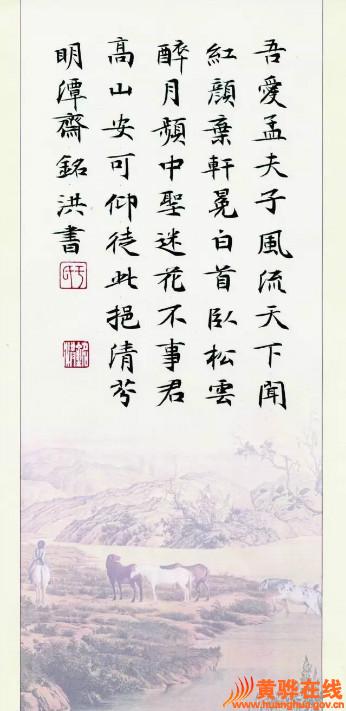 吾愛孟夫子風流天下聞
紅顔棄軒冕白首臥松雲
醉月頻中聖迷花不事君
高山安可仰徒此挹清芬
明潭齋銘洪書
黄骅在线
www.huanghua.gov.cn